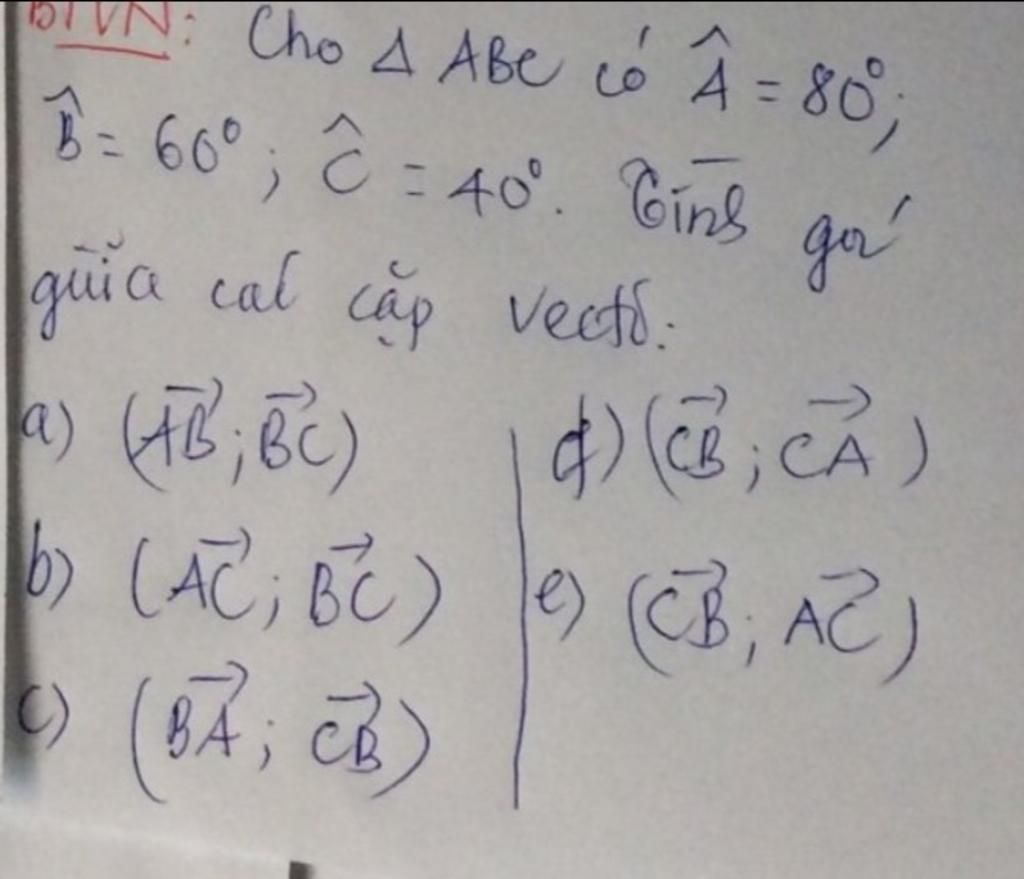 BTVN: Cho Δ ABC có Â = 80°;
B̂ = 60°; Ĉ = 40°. Tính góc
giữa các cặp vectơ:
a) (→AB; →BC)
b) (→AC; →BC)
c) (→BA; →CB)
d) (→CB; →CA)
e) (→CB; →AC)